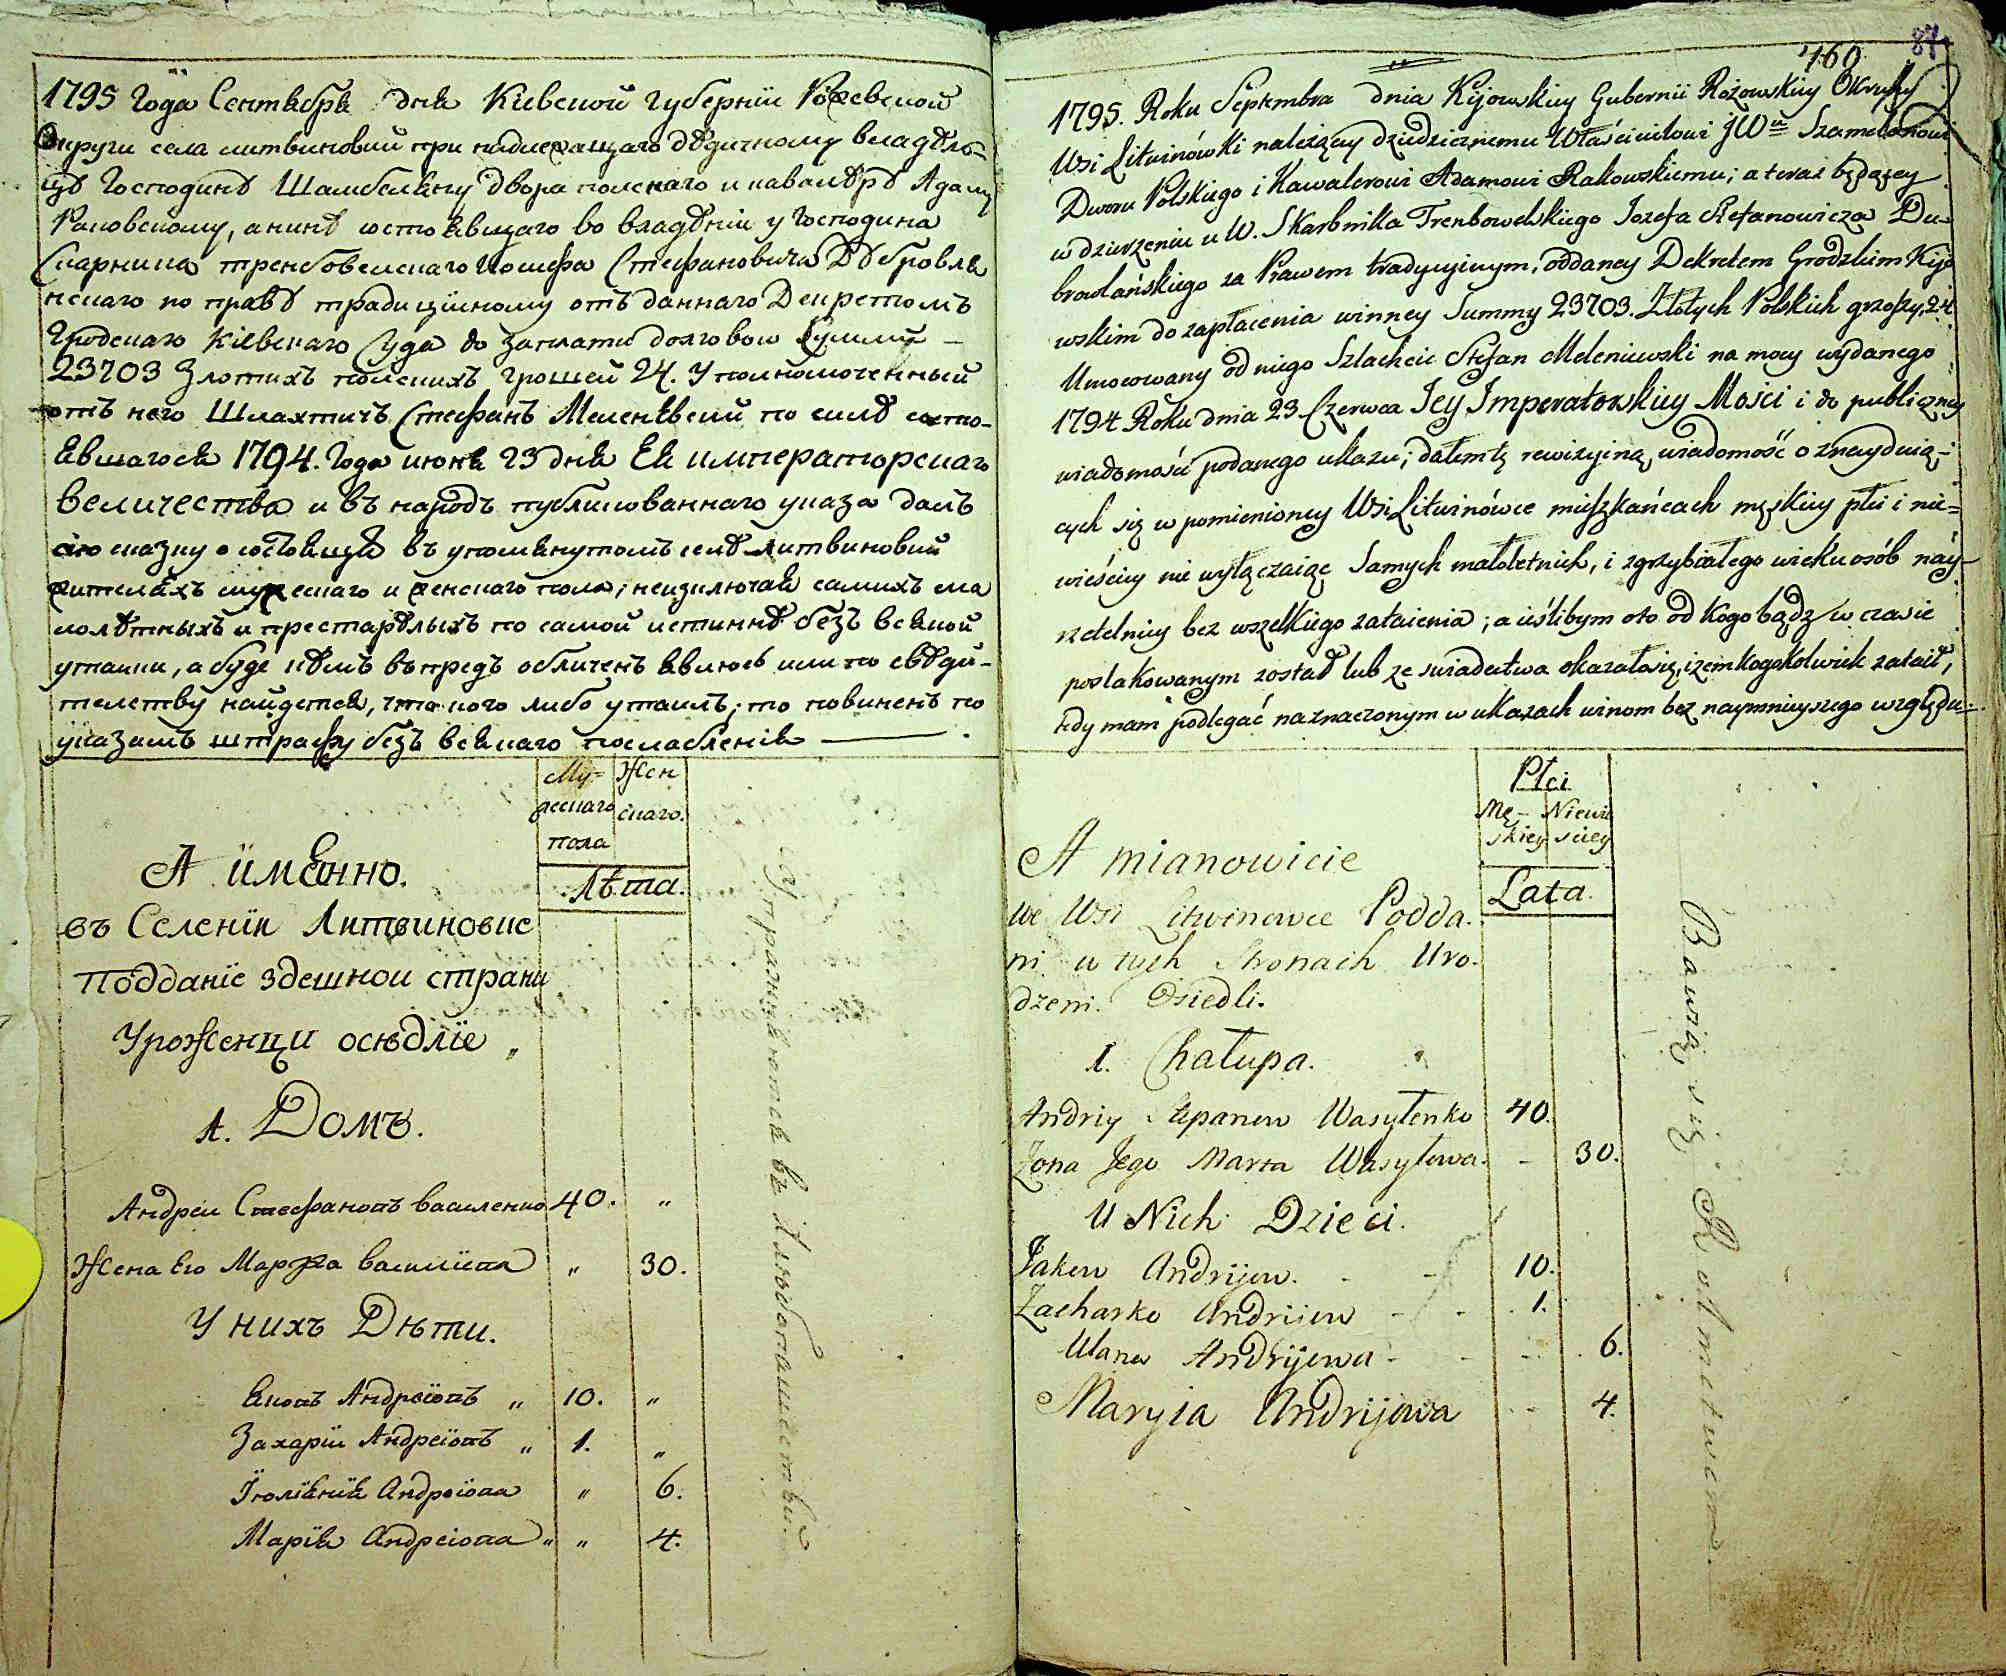 1795 года Сентебря дня Кіевской губерніи Рожевской
округи села литвиновки принадлежащаго дѣдичному владѣль-
цѣ Господинѣ Шамбеляну двора полскаго и кавалѣрѣ Адаму
Раковскому, а нинѣ состоявщаго во владѣніи у Господина
Скарника тренбовелскаго Иосифа Стефановича Дубровля
нскаго по правѣ традиційному отъ даннаго Декретомъ
Гродскаго Кіевскаго Суда до заплати долговой Суммы
23703 Злотихъ полскихъ грошей 24. Уполномоченный
отъ него Шляхтичъ Стефанъ Меленѣвски по силѣ состо-
явшагося 1794. Года июня 23 дня Ея императорскаго
величества и въ народъ публикованнаго указа далъ
сію сказку о состоящія въ упомянутомъ селѣ литвиновки
жителяхъ мужескаго и женскаго пола; неизключая самихъ ма
лолѣтныхъ и престарѣлыхъ по самой истиннѣ безъ всякой
утайки, а буде кѣмъ въпредъ обличенъ явлюсь или по свѣди-
телству найдется, что кого либо утаилъ; то повиненъ по
указамъ штрафу безъ всякаго послабленія
Му- Жен
жескаго скаго.
пола
Лѣта.
А именно.
въ Селеніи Литвиновке
Подданіе здешнои страни
Уроженци осѣдліе „
1. Домъ.
Андреи Стефановъ василенко 40. „
Жена Его Марфа василіева „ 30.
У нихъ Дѣти.
Яковъ Андреіовъ „ 10. „
Захаріи Андреіовъ „ 1. „
Іюліянія Андреіова „ 6.
Марія Андреіова „ „ 4.
87.
460
1795. Roku Septembra dnia Kijowskiey Gubernii Rożowskiey Okruhy
Wsi Litwinówki należący dziedzicznemu Właścicielowi JW Szambelanowi
Dworu Polskiego i Kawalerowi Adamowi Rakowskiemu; a teraz będącey
w dzierżeniu u W. Skarbnika Trenbowelskiego Jozefa Stefanowicza Du
browlańskiego za Prawem tradycyinym, oddaney Dekretem Grodzkim Kijo
wskim do zapłacenia winney Summy 23703. Złotych Polskich groszy 24.
Umocowany od niego Szlachcic Stefan Meleniewski na mocy wydanego
1794 Roku dnia 23 Czerwca Jey Imperatorskiey Mości i do publiczney
wiadomości podanego ukazu; dałem tę rewizyiną wiadomość o znayduią-
cych się w pomienioney Wsi Litwinówce mieszkańcach męskiey płci i nie=
wieściey nie wyłączaiąc Samych małoletnich, i zgrzybiałego wieku osób nay-
rzetelniey bez wszelkiego zataienia; a ieślibym oto od kogo bądz w czasie
poszlakowanym został lub ze swiadectwa okazałosię, iżem kogokolwiek zataił,
tedy mam podlegać naznaczonym w ukazach winom bez naymnieyszego względu.
Płci
Mę- Niewie
skiey sciey
Lata.
A mianowicie
we Wsi Litwinowce Podda.
ni w tych Stronach Uro.
dzeni. Osiedli.
1. Chałupa.
Andriy Stepanow Wasyłenko 40.
Zona Jego Marta Wasyłowa. - 30.
U Nich Dzieci.
Jakow Andrijow. - - 10.
Zacharko Andrijow - - 1.
Ulana Andrijowa - - - 6.
Maryia Andrijowa - - 4.
Bawią się Rolnictwem.